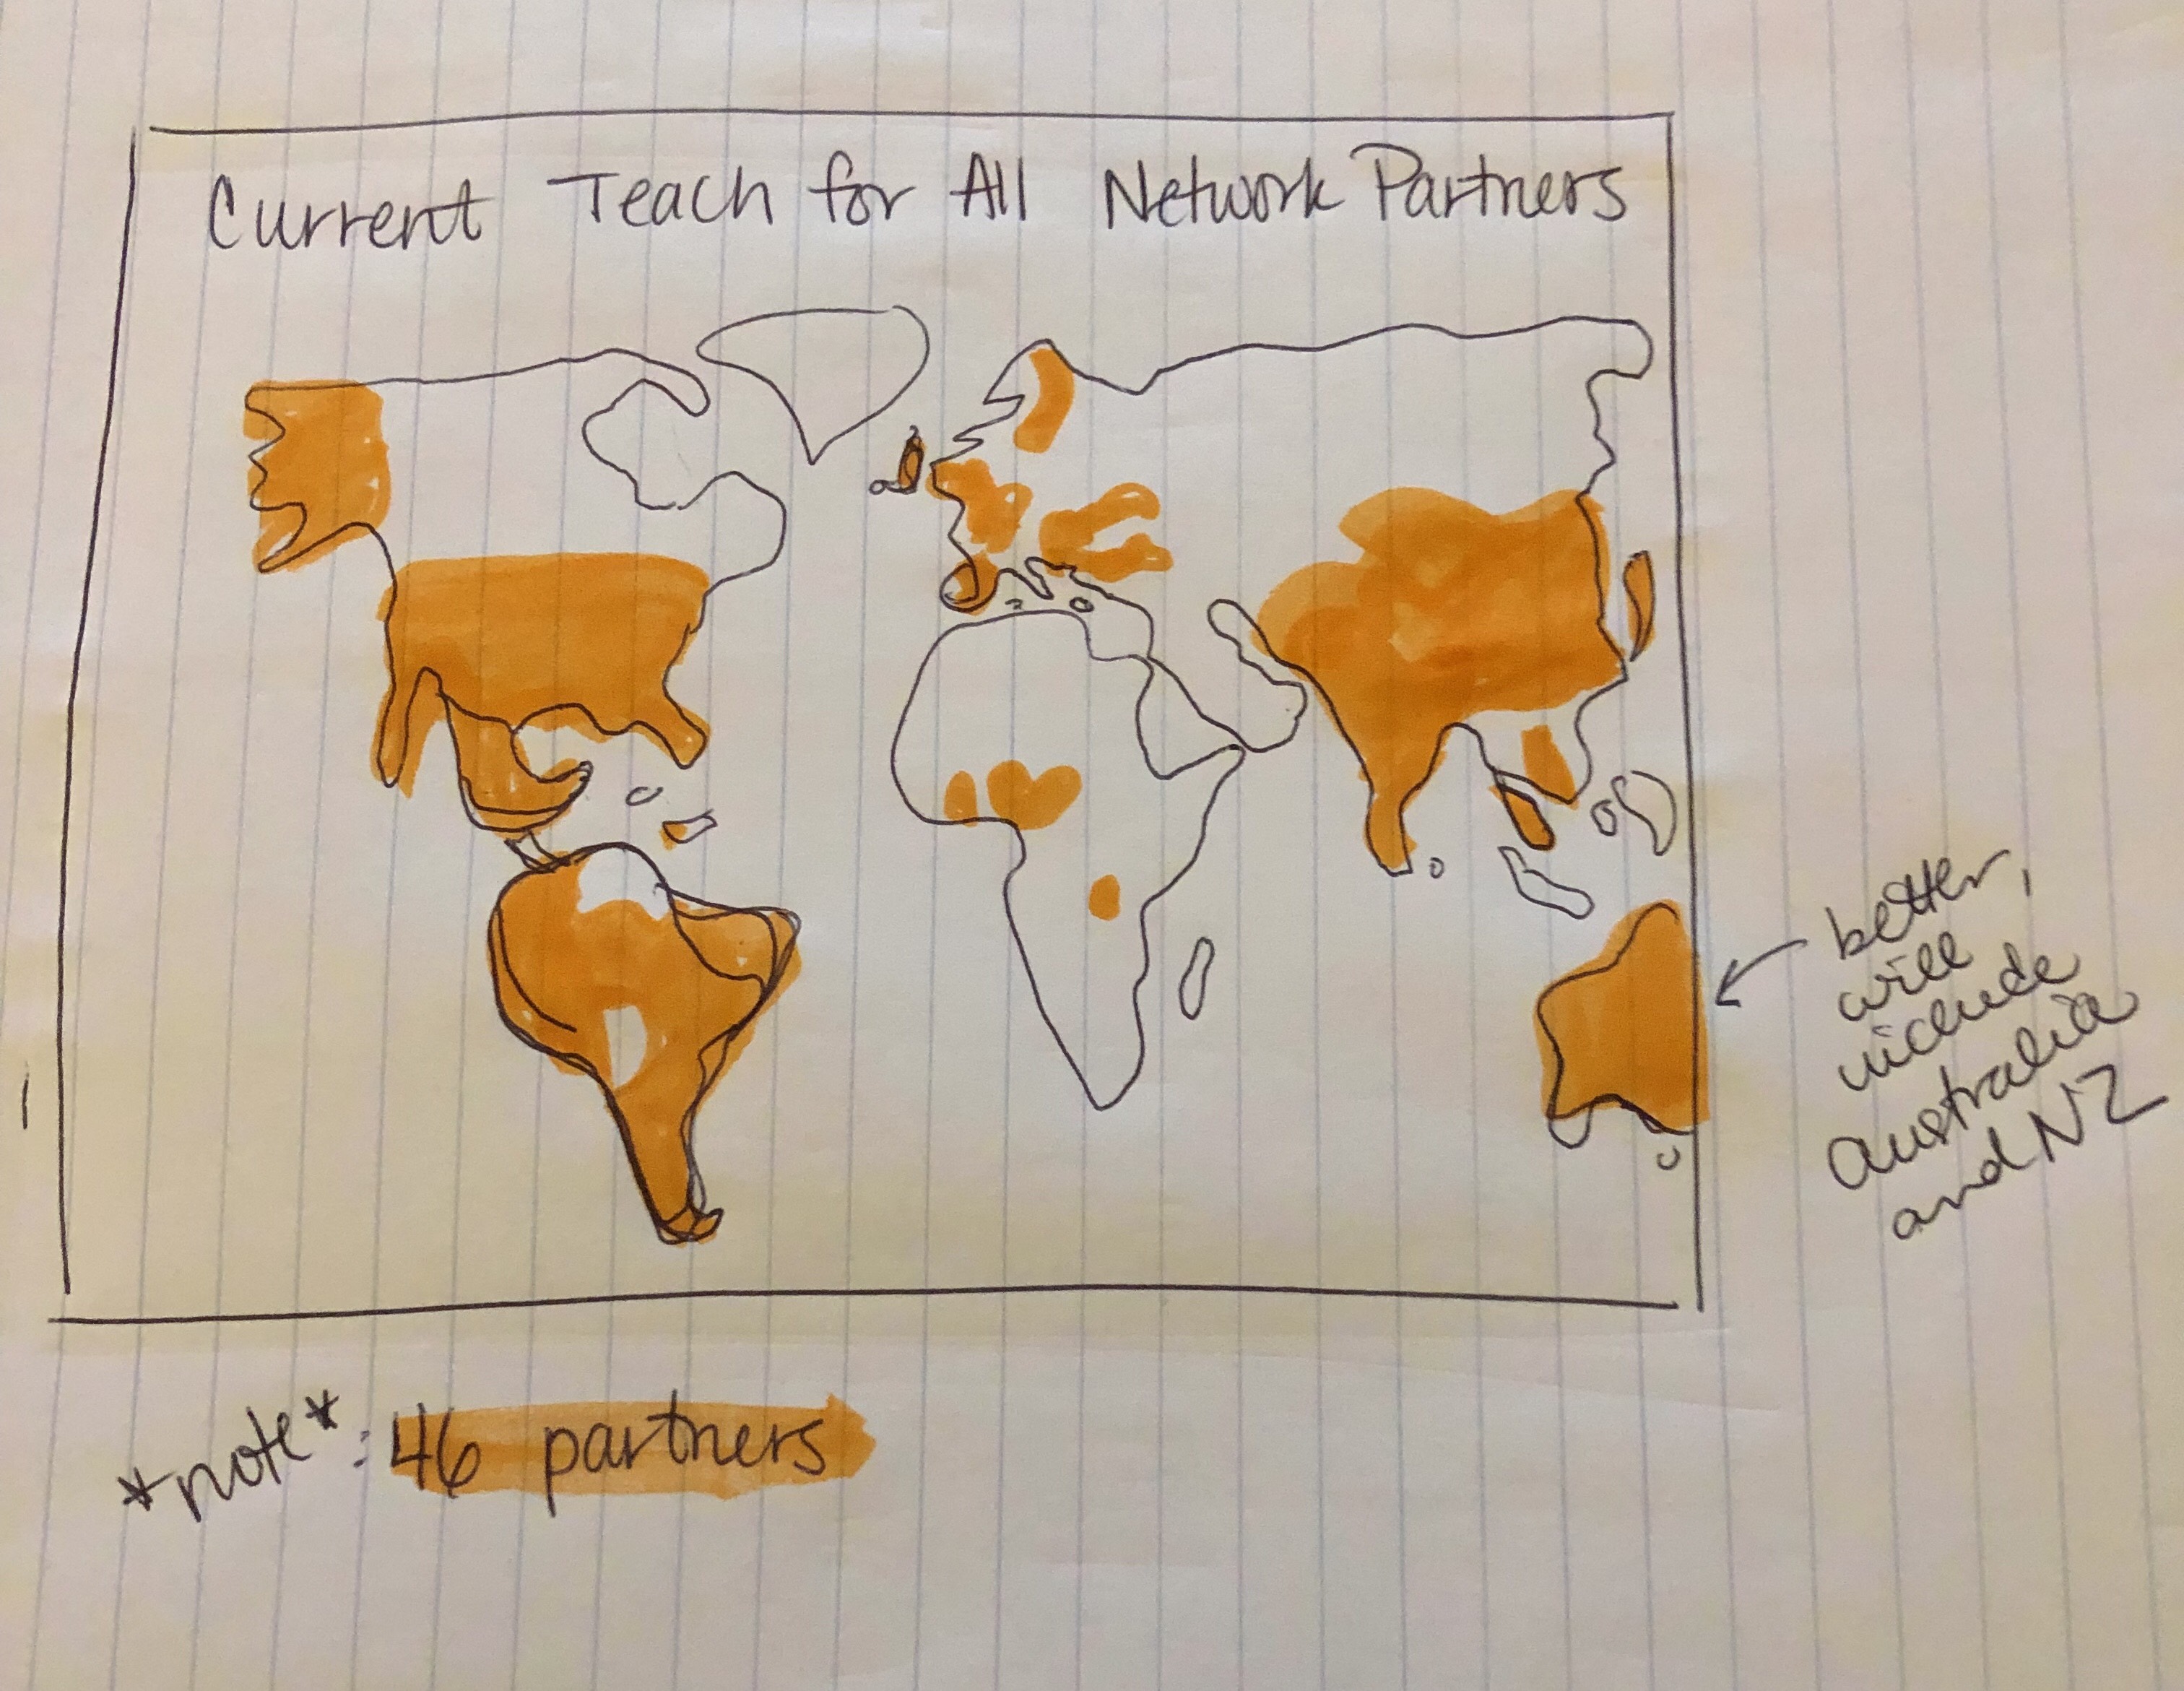 Current Teach for All Network Partners
better,
will
include
australia
and NZ
*note*: 46 partners